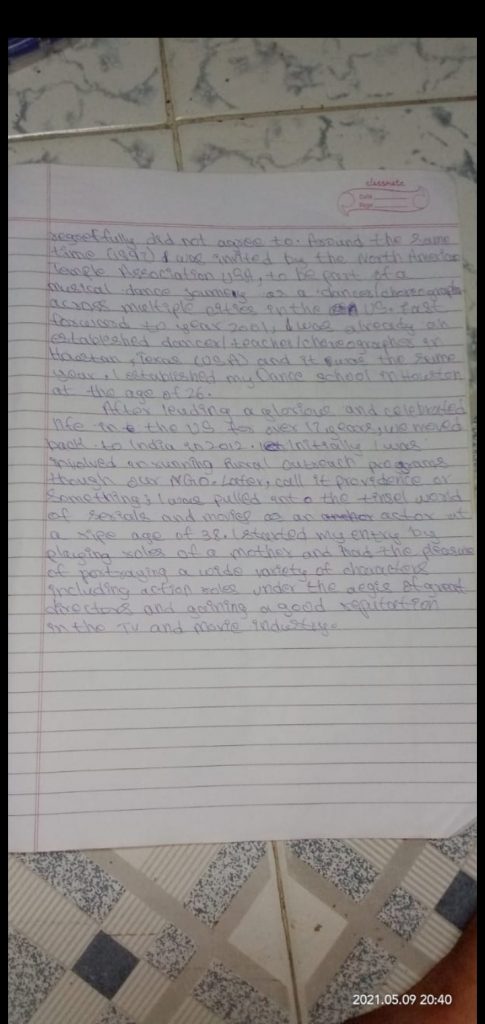 classmate
Date
Page
regretfully did not agree to. Around the same
time (1997) I was invited by the North American
Temple Association USA, to be part of a
musical dance journey as a dancer/choreograph
across multiple cities in the US. Fast
forward to year 2001, I was already an
established dancer/teacher/choreographer in
Houston, Texas (USA) and it was the same
year, I established my Dance school in Houston
at the age of 26.
After leading a glorious and celebrated
life in the US for over 17 years, we moved
back to India in 2012. Initially I was
involved in running Rural outreach programs
though our NGO. Later, call it providence or
something, I was pulled into the tinsel world
of serials and movies as an actor at
a ripe age of 38. I started my entry by
playing roles of a mother and had the pleasure
of portraying a wide variety of characters
including action roles under the aegis of great
directors and gaining a good reputation
in the TV and movie industry.
2021.05.09 20:40